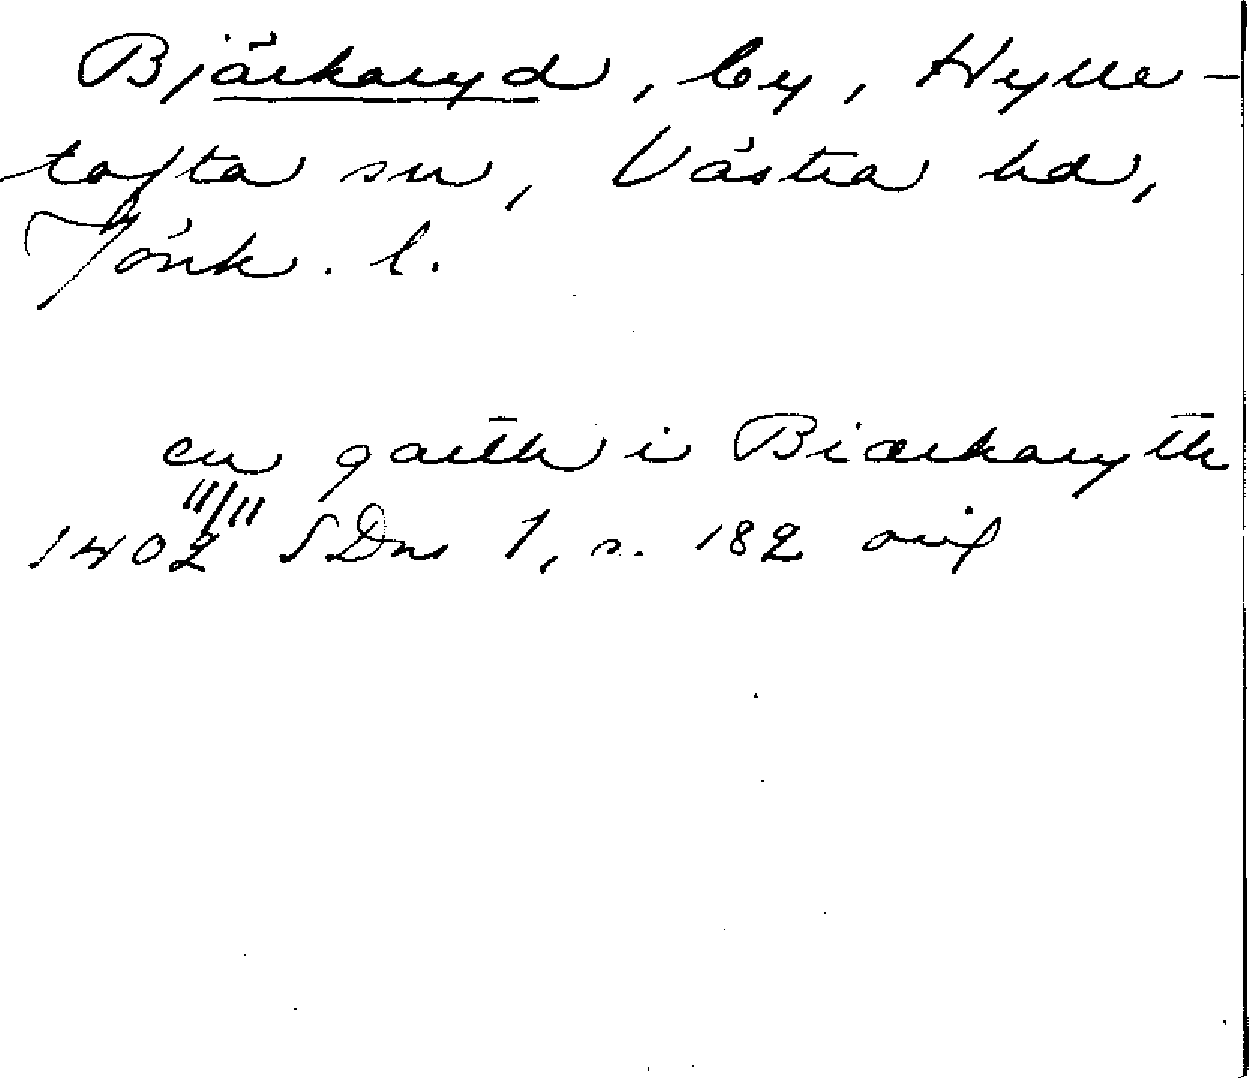 Bjärkaryd, by, Hylle-
tofta sn, Västra hd,
Jönk. l.
en garth i Biærkaryth
11/11
1402 SDns 1, s. 182 orig